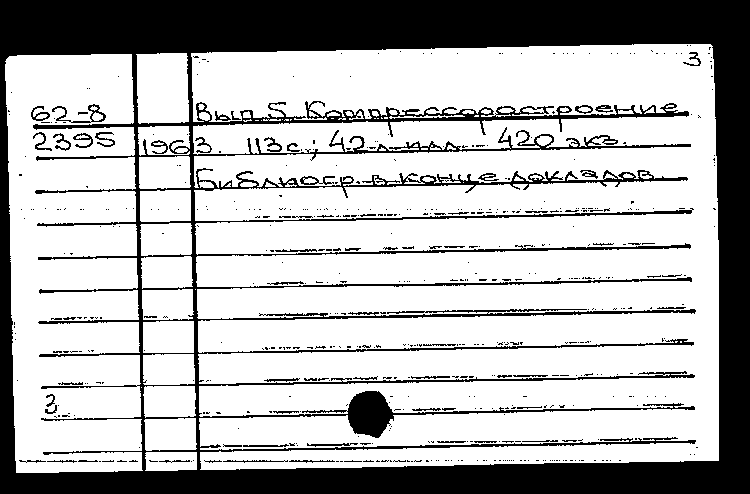 3
62-8 Вып 5. Компрессоростроение
2395 1963. 113с.; 42 л илл 420 экз.
Библиогр в конце докладов.
3